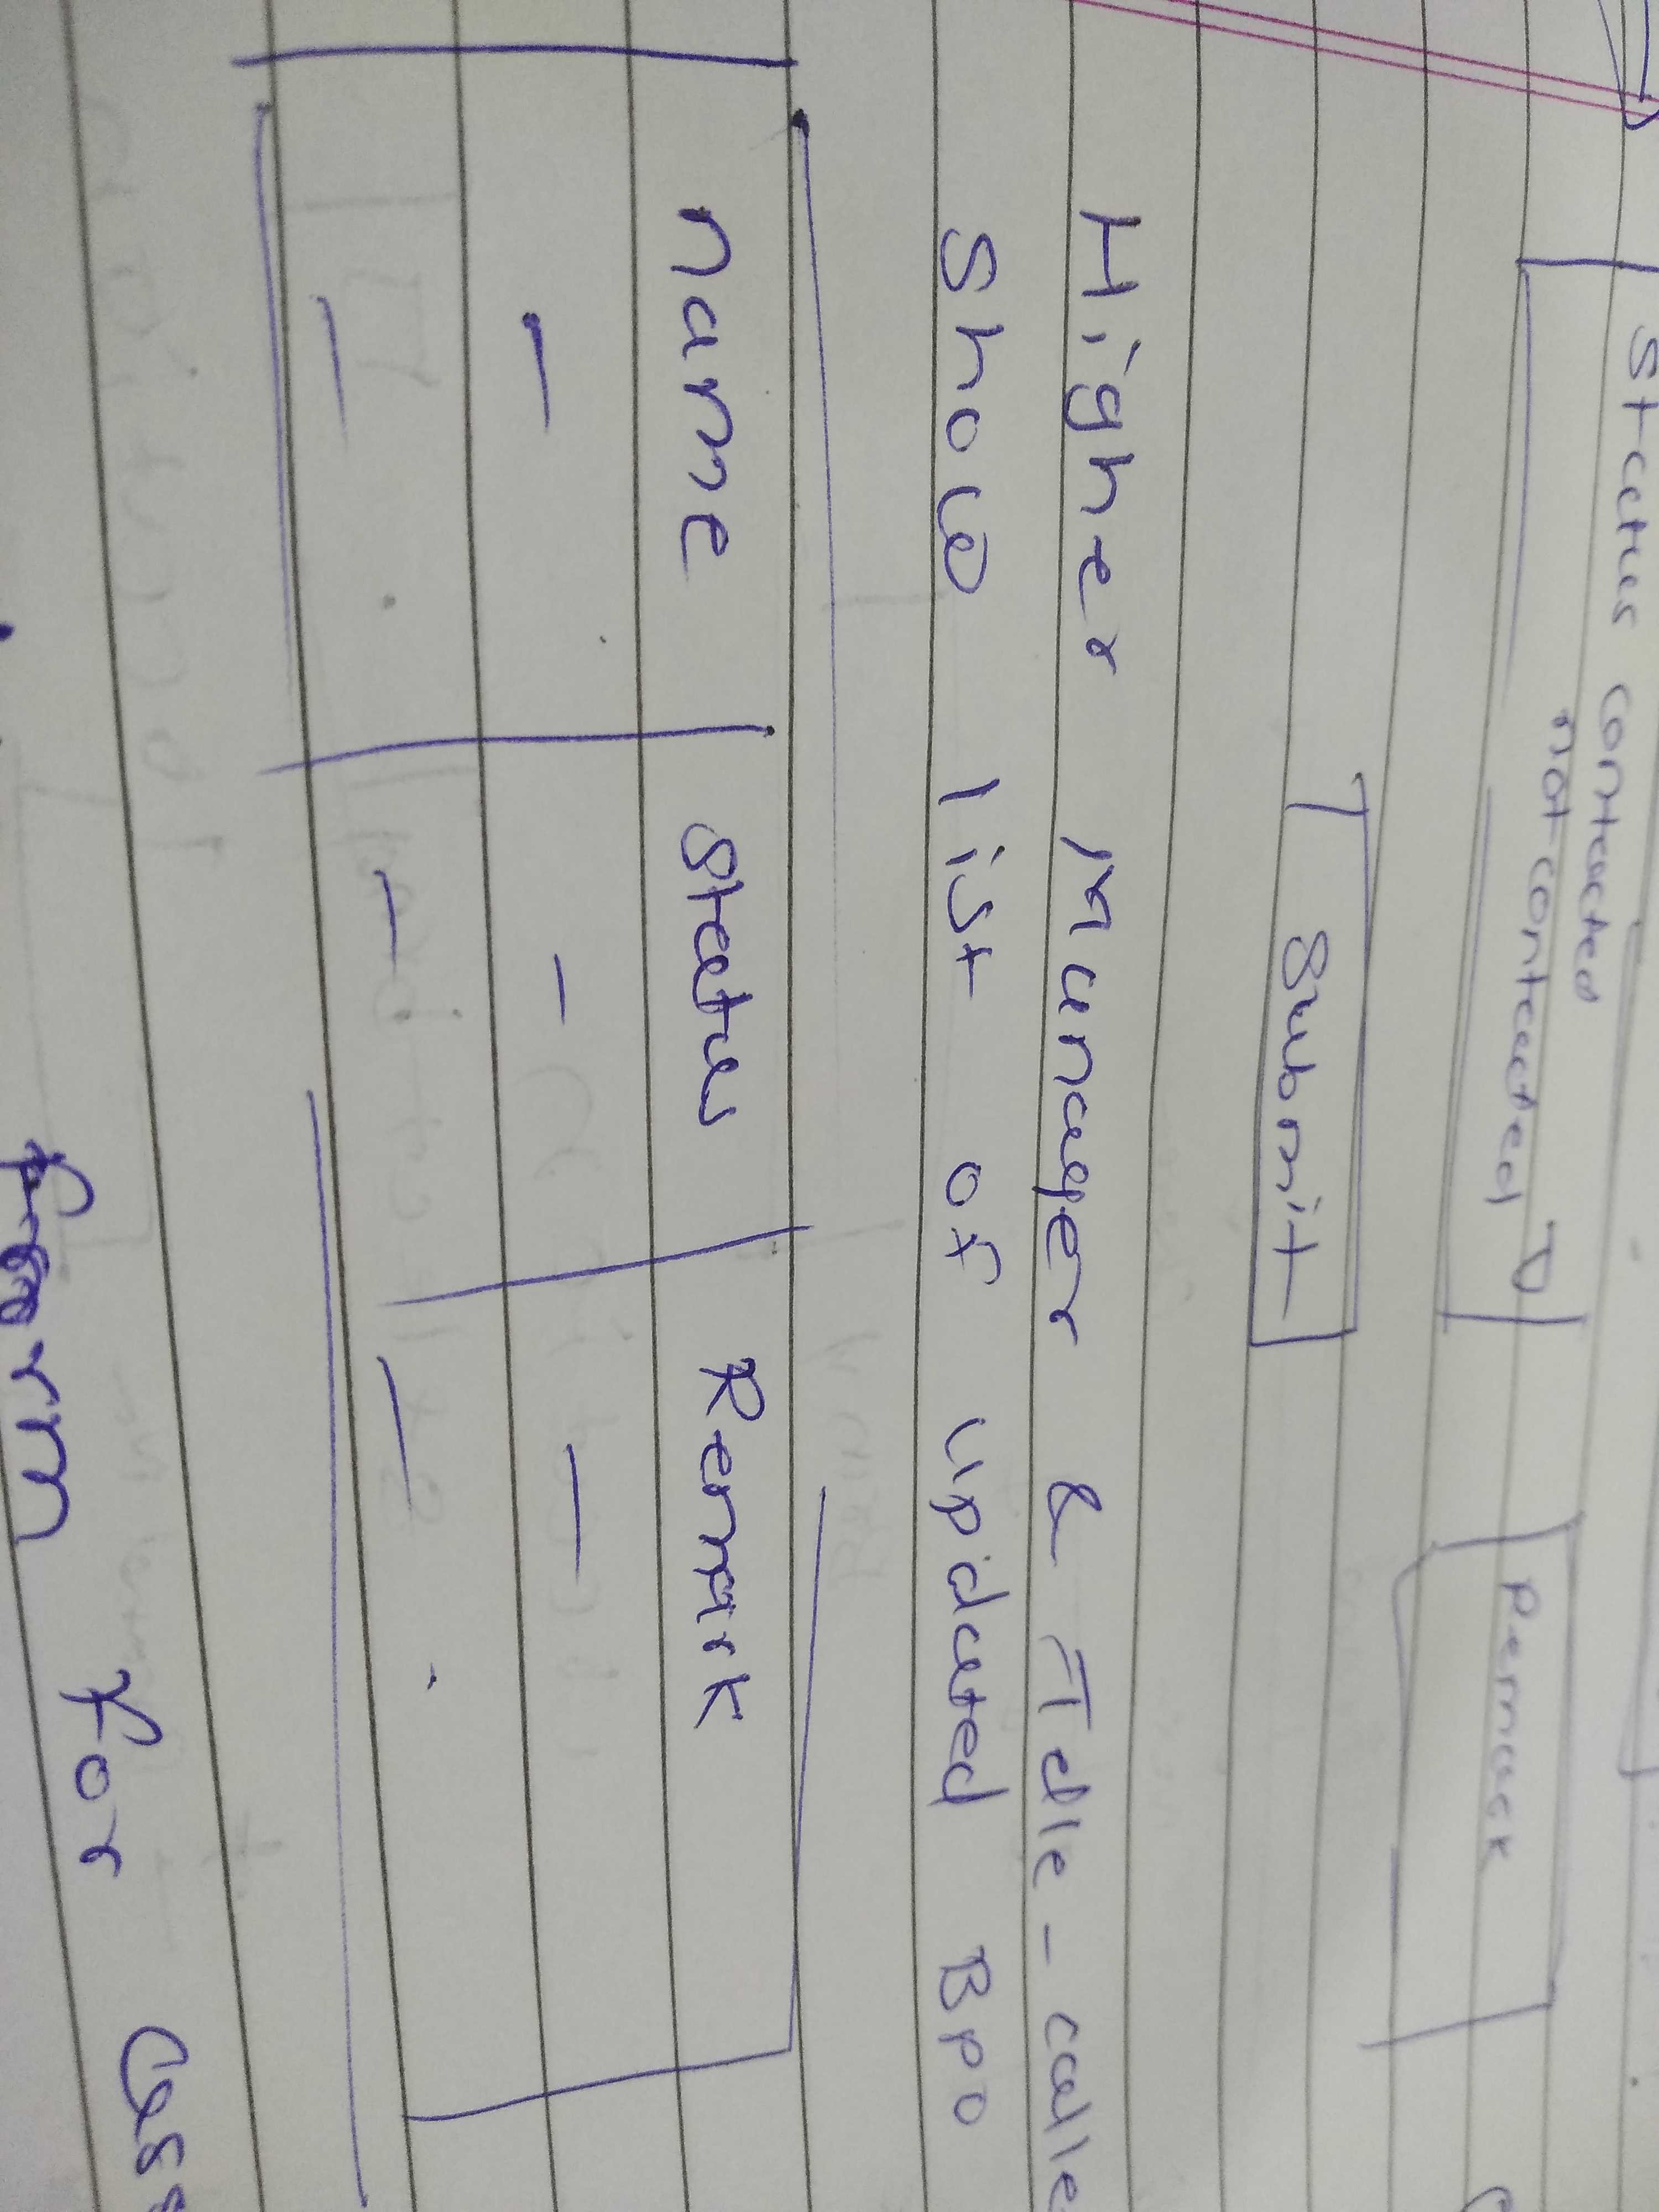 Status contacted
not contacted
Remark
Submit
Higher Manager & Telle-calle
Show list of updated Bpo
name Status Remark
- - -
- - -
form for